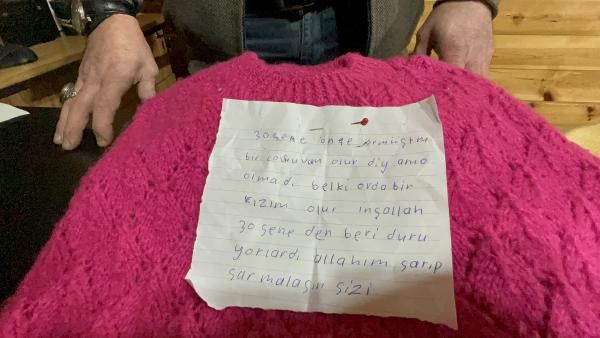 30 sene önce örmüştüm
bir çocuvum olur diy ama
olmadı belki orda bir
kızım olur inşallah
30 sene den beri duru
yorlardı allahım sarıp
sarmalasın sizi